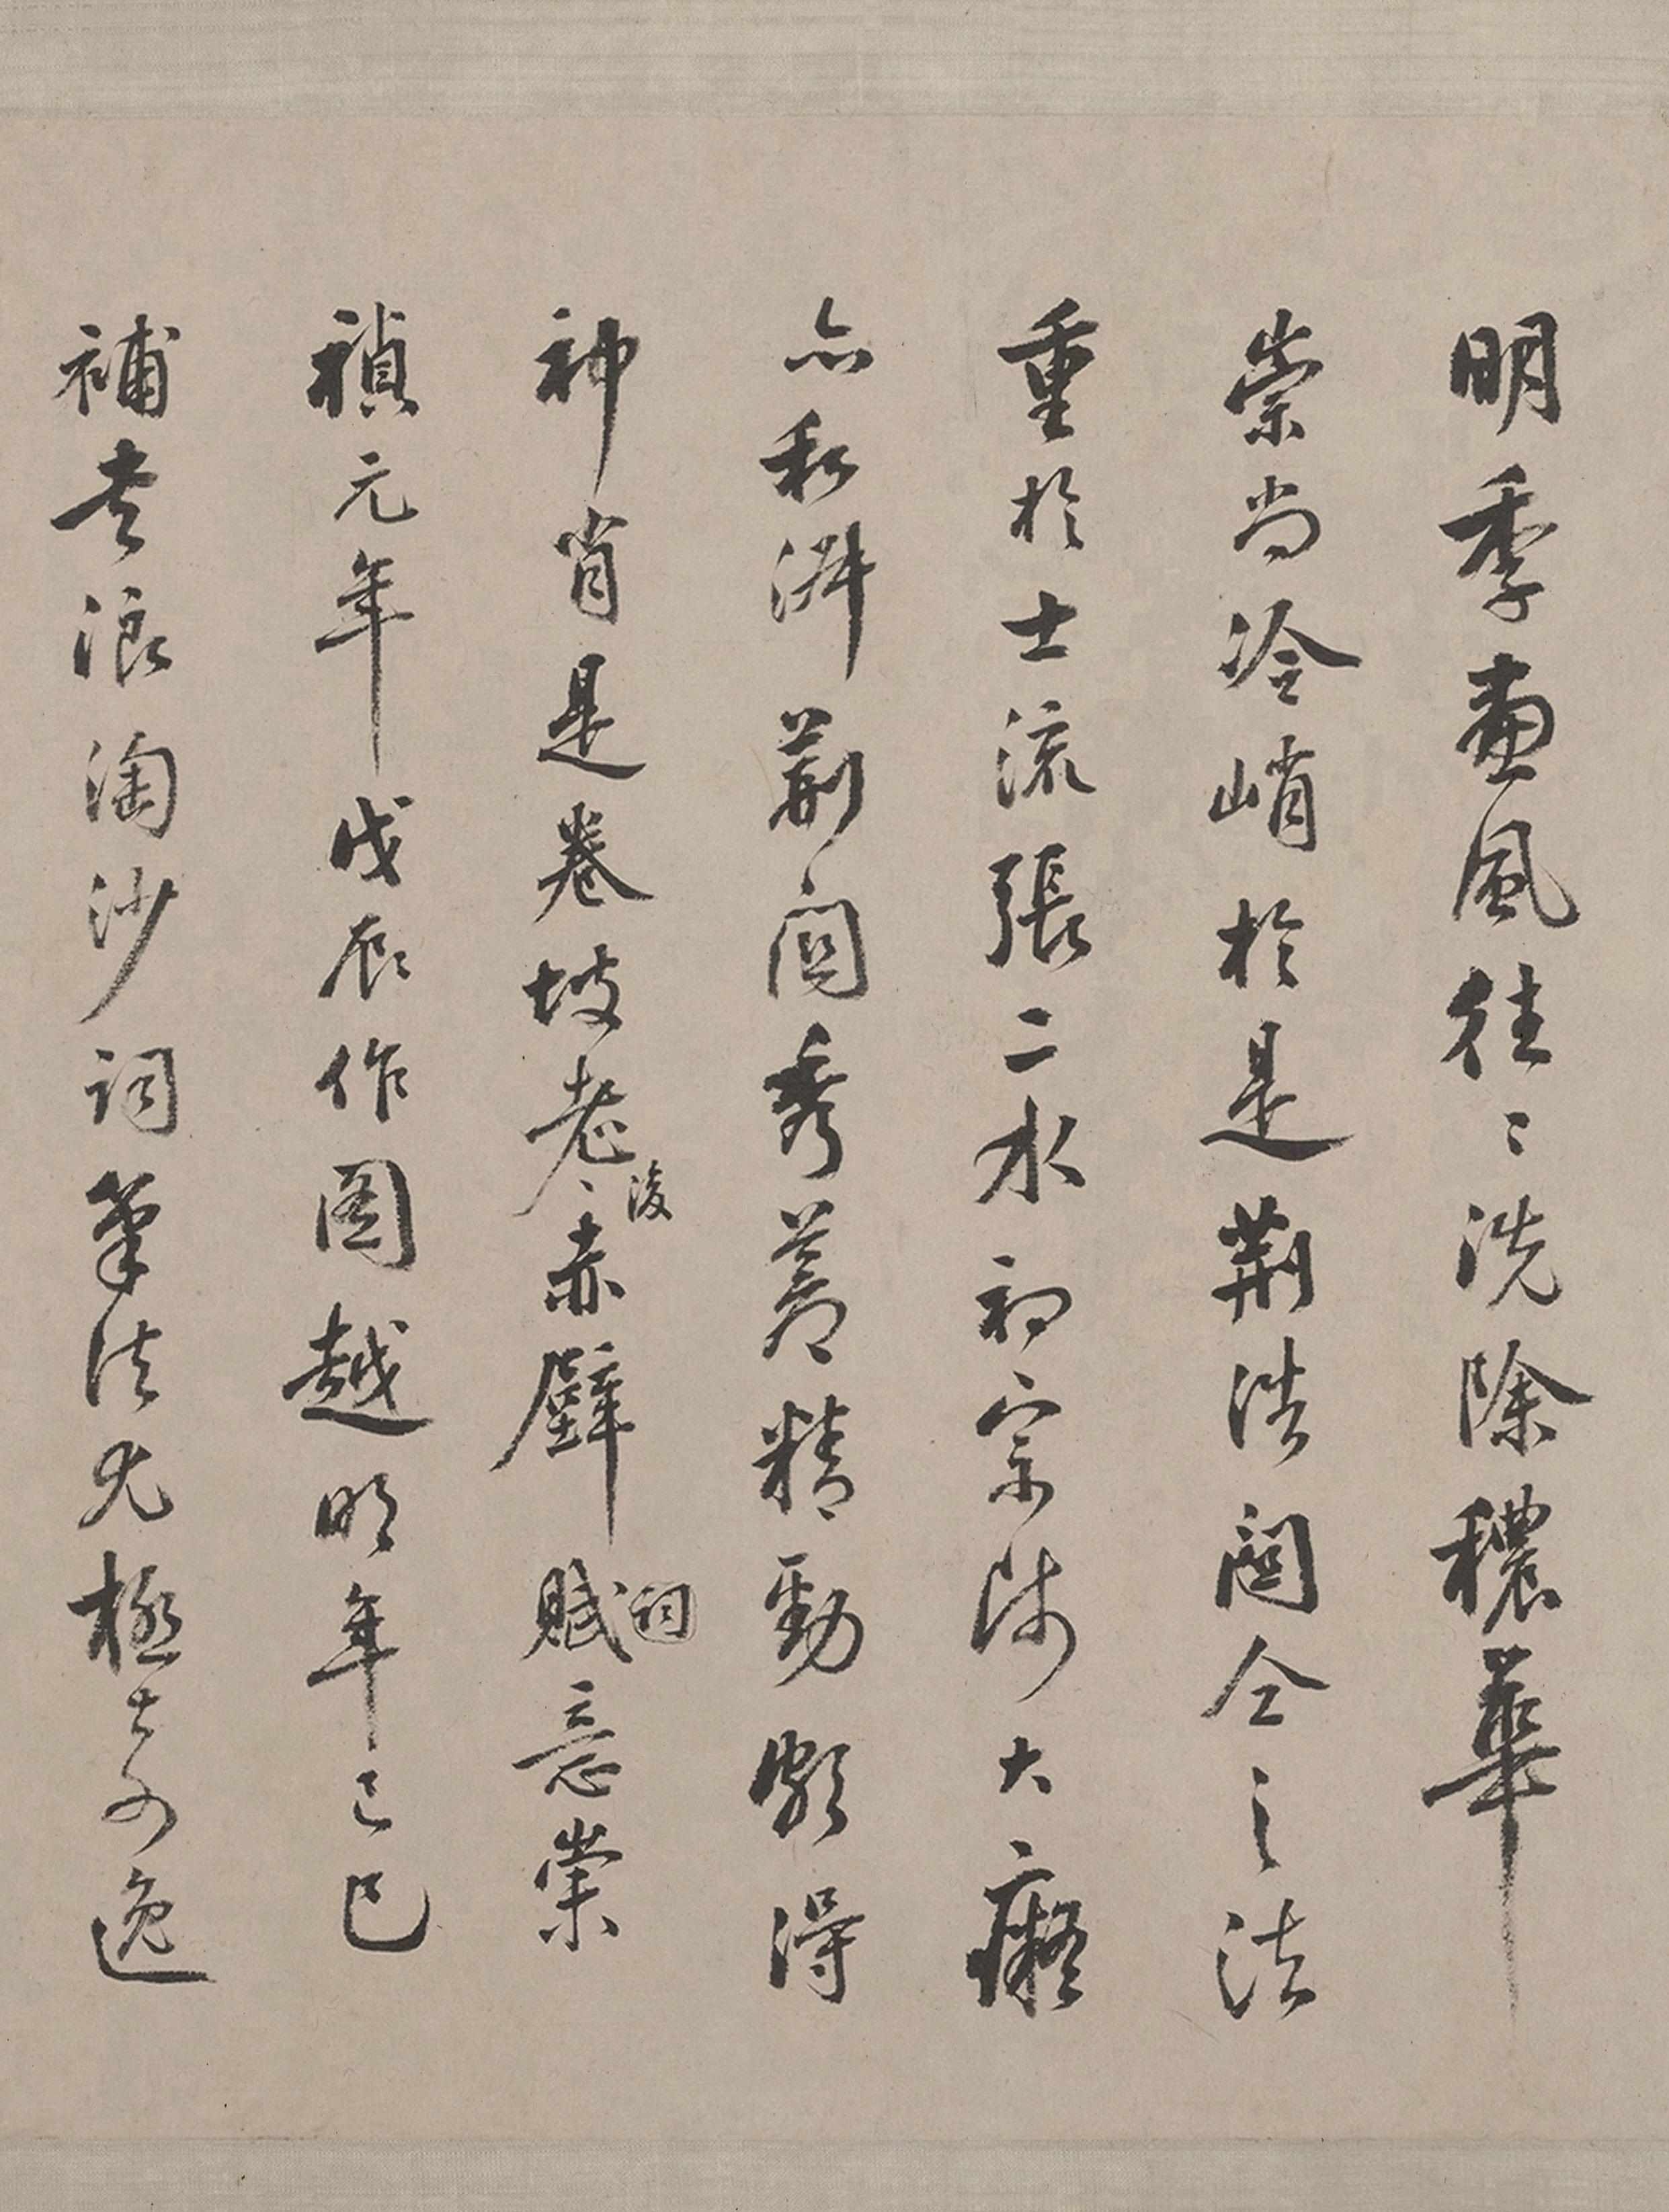 明季畫風往〻洗除穠華
崇尚冷峭於是荊浩關仝之法
重於士流張二水初宗師大癡
亦私淑荊關秀蒼精勁頗得
神肖是卷坡老後赤壁賦詞意崇
禎元年戊辰作圖越明年己巳
補書浪淘沙詞筆法尤極奇逸